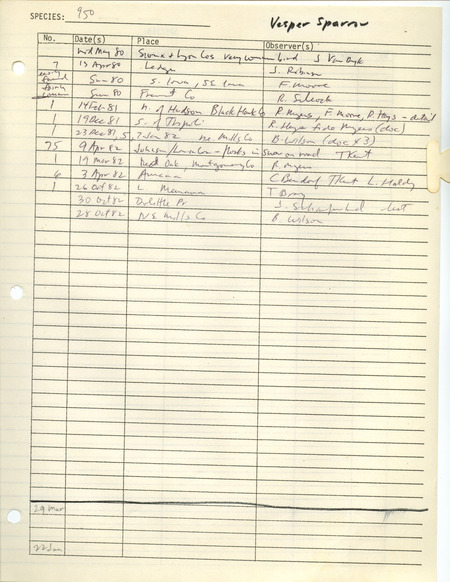 SPECIES: 950
Vesper Sparrow
No. Date(s) Place Observer(s)
May 80 Sioux + Lyon Cos very common bird J Van Dyk
7 19 Apr 80 Ledges
Sum 80 S. Iowa, SE Iowa F. Moore
Sum 80 Fremont Co R. Silcock
1 14 Feb 81 N. of Hudson Black Hawk Co R. Myers, F. Moore, R. Hays - detail
1 19 Dec 81 S. of R. Hays fide Myers (disc)
1 23 Dec 81, 7 Jan 82 ne Mills Co B. Wilson (disc x 3)
75 9 Apr 82 Johnson/Linn Co - flocks in snow on road T Kent
1 19 Mar 82 Red Oak, Montgomery Co R. Myers
6 3 Apr 82 Amana C Bendorf T Kent L. Haldy
1 26 Oct 82 L. T Bray
30 Oct 82 Dolittle Pr
28 Oct 82 NE Mills Co B. Wilson
29 Mar
22 Jan